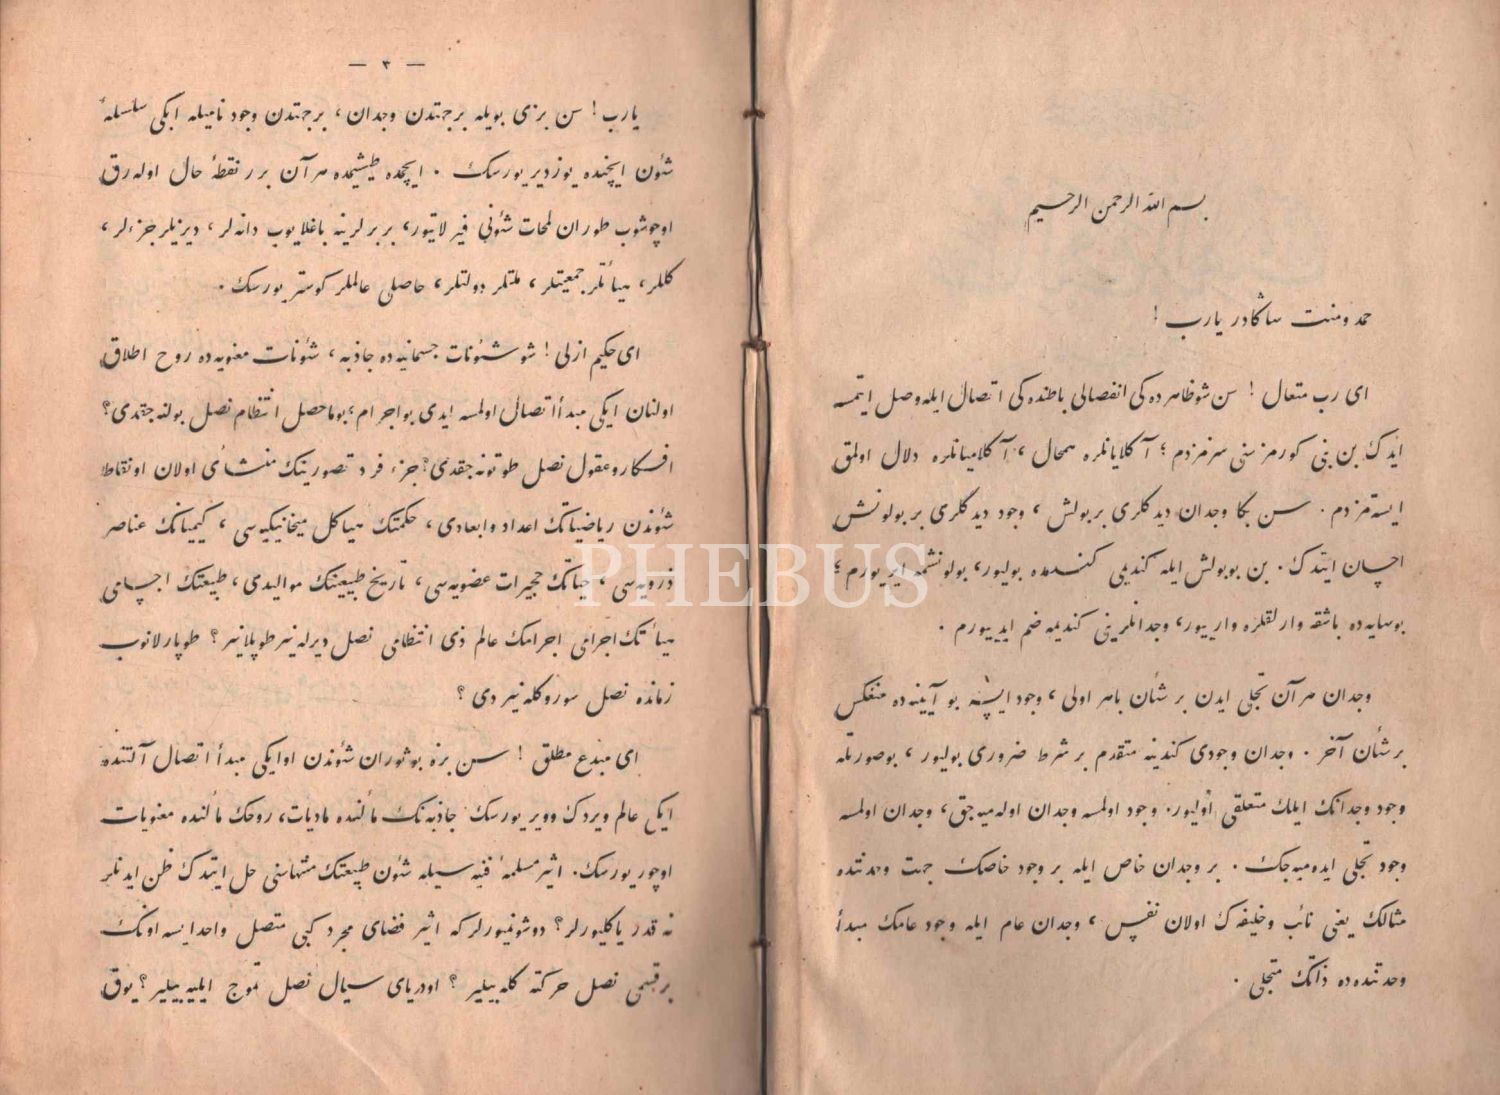 بسم الله الرحمن الرحيم
حمد ومنت سڭادر يارب !
اى رب متعال ! سن شو ظاهرده كى انفصالى باطنده كى اتصال ايله وصل ايتمسه
ايدك بن بنى كورمز سنى سزمزدم ؛ آكلايانلره همحال ، آكلاميانلره دلال اولمق
ايسته مزدم . سن بكا وجدان ديدكلرى بر بولش ، وجود ديدكلرى بر بولونش
احسان ايتدك . بن بو بولش ايله كنديمى كندمده بوليور ، بولونشمه ايريورم ؛
بوسايه ده باشقه وارلقلره وارييور ، وجدانلرينى كنديمه ضم ايدييورم .
وجدان هر آن تجلى ايدن بر شأن باهر اولى ، وجود ايسه بو آيينه ده منعكس
بر شأن آخر . وجدان وجودى كندينه متقدم بر شرط ضرورى بوليور ، بوصورتله
وجود وجدانك ايلك متعلقى اوليور . وجود اولمسه وجدان اوله ميه جق ، وجدان اولمسه
وجود تجلى ايده ميه جك . بر وجدان خاص ايله بر وجود خاصك جهت وحدتنده
مثالك يعنى نائب وخليفه ك اولان نفس ، وجدان عام ايله وجود عامك مبدأ
وحدتنده ده ذاتك متجلى .
— ٣ —
يارب ! سن بزى بويله بر جهتدن وجدان ، بر جهتدن وجود ناميله ايكى سلسلۀ
شئون ايچنده يوزديريورسك . ايچمده طيشمده هر آن برر نقطۀ حال اوله رق
اوچوشوب طوران لمحات شئونى فيرلاتيور ، بربرلرينه باغلايوب دانه لر ، ديزيلر جزءلر ،
كللر ، هيأتلر جمعيتلر ، ملتلر دولتلر ، حاصلى عالملر كوستريورسك .
اى حكيم ازلى ! شو شئونات جسمانيه ده جاذبه ، شئونات معنويه ده روح اطلاق
اولنان ايكى مبدأ اتصال اولمسه ايدى بو اجرام ، بو ماحصل انتظام نصل بوله جقدى ؟
افكار وعقول نصل طوتونه جقدى ؟ جزء فرد تصورينك منشأى اولان او نقاط
شئوندن رياضياتك اعداد وابعادى ، حكمتك هياكل ميخانيكيه سى ، كيميانك عناصر
ذرويه سى ، حياتك حجيرات عضويه سى ، تاريخ طبيعينك مواليدى ، طبيعتك اجسامى
هيأتك اجرامى اجرامك عالم ذى انتظامى نصل ديرله نير طوپلانير ؟ طوپارلانوب
زمانده نصل سوروكله نيردى ؟
اى مبدع مطلق ! سن بزه بو ثوران شئوندن او ايكى مبدأ اتصال آلتنده
ايكى عالم ويردك وويريورسك جاذبه نك مآلنده ماديات ، روحك مآلنده معنويات
اوچوريورسك . اثير مسلمۀ فنيه سيله شئون طبيعتك منتهاسنى حل ايتدك ظن ايدنلر
نه قدر ياكليورلر ؟ دوشونميورلر كه اثير فضاى مجرد كبى متصل واحد ايسه اونك
بر قسمى نصل حركته كله بيلير ؟ او درياى سيال نصل تموج ايليه بيلير ؟ يوق
PHEBUS